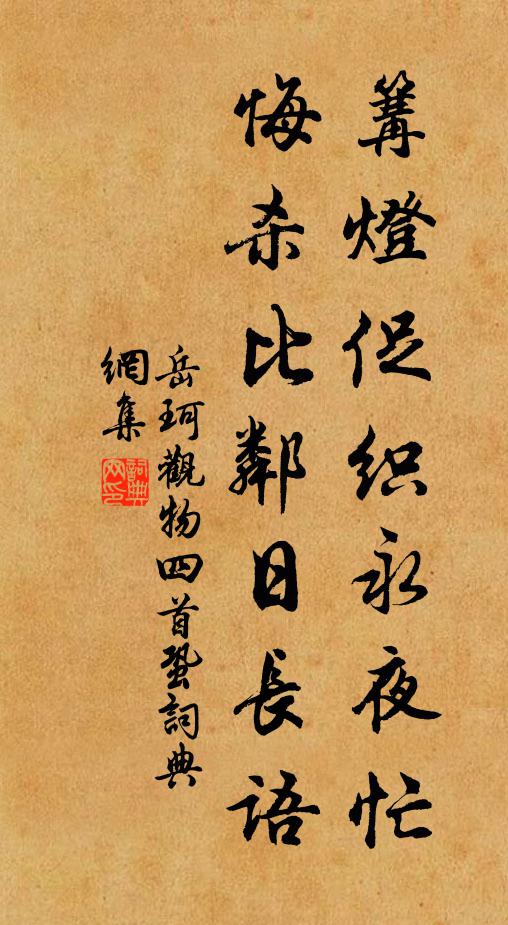 篝燈促织永夜忙
悔杀比鄰日長语
岳珂觀物四首蛩詞典
網集
詞典網印